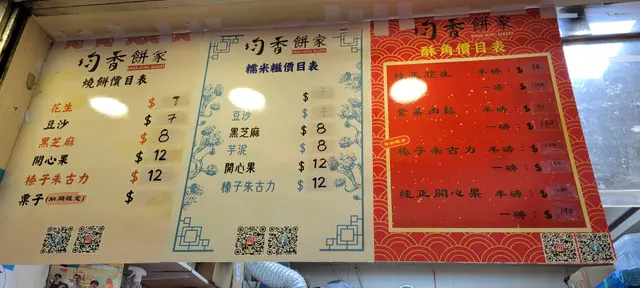 均香餅家
燒餅價目表
花生 $ 7
豆沙 $ 7
黑芝麻 $ 8
開心果 $ 12
榛子朱古力 $ 12
栗子(期間限定) $
均香餅家
糯米糍價目表
$
豆沙 $
黑芝麻 $ 8
芋泥 $ 8
開心果 $ 12
榛子朱古力 $ 12
均香餅家
酥角價目表
純正花生 半磅: $
一磅: $
紫菜肉鬆 半磅: $
一磅: $
榛子朱古力 半磅: $
一磅: $
純正開心果 半磅: $
一磅: $ 190